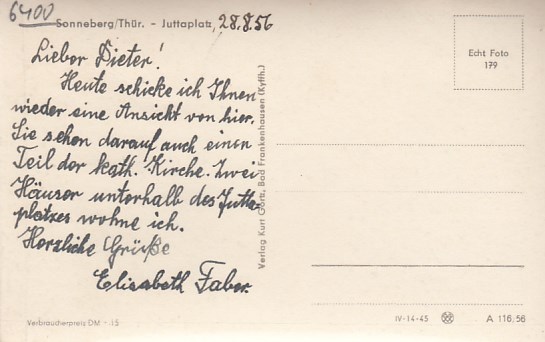 6400
Sonneberg/Thür. - Juttaplatz, 28.8.56
Lieber Dieter!
Heute schicke ich Ihnen
wieder eine Ansicht von hier.
Sie sehen darauf auch einen
Teil der kath. Kirche. Zwei
Häuser unterhalb des Jutta-
platzes wohne ich.
Herzliche Grüße
Elisabeth Faber.
Verbraucherpreis DM -.15
Verlag Kurt Görtz, Bad Frankenhausen (Kyffh.)
Echt Foto
179
IV-14-45
A 116/56